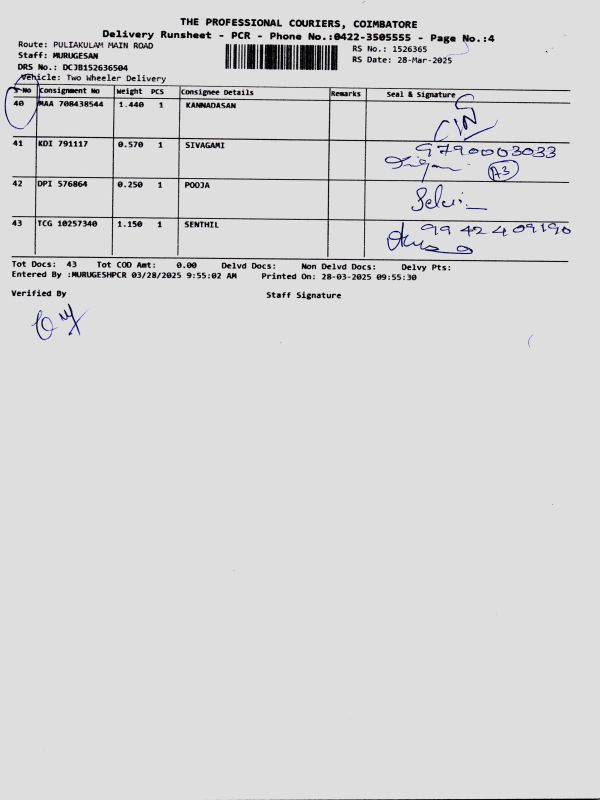 THE PROFESSIONAL COURIERS, COIMBATORE
Delivery Runsheet - PCR - Phone No.:0422-3505555 - Page No.:4
Route: PULIAKULAM MAIN ROAD RS No.: 1526365
Staff: MURUGESAN RS Date: 28-Mar-2025
DRS No.: DCJB152636504
Vehicle: Two Wheeler Delivery
S No Consignment No Weight PCS Consignee Details Remarks Seal & Signature
40 MAA 708438544 1.440 1 KANNADASAN
41 KDI 791117 0.570 1 SIVAGAMI 9790003033
A3
42 DPI 576864 0.250 1 POOJA Selvi
43 TCG 10257340 1.150 1 SENTHIL 9942409190
Tot Docs: 43 Tot COD Amt: 0.00 Delvd Docs: Non Delvd Docs: Delvy Pts:
Entered By :MURUGESHPCR 03/28/2025 9:55:02 AM Printed On: 28-03-2025 09:55:30
Verified By Staff Signature